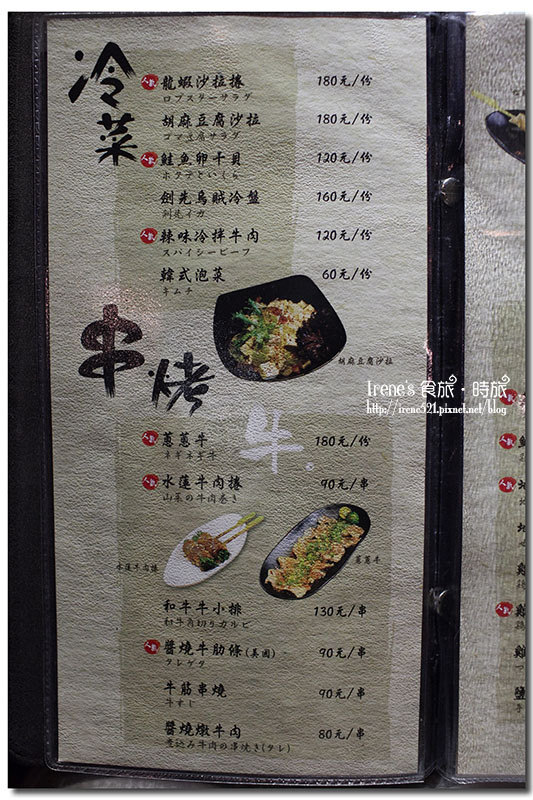 冷菜
人氣 龍蝦沙拉捲 180元/份
ロブスターサラダ
胡麻豆腐沙拉 180元/份
ゴマ豆腐サラダ
人氣 鮭魚卵干貝 120元/份
ホタテといくら
劍先烏賊冷盤 160元/份
剣先イカ
人氣 辣味冷拌牛肉 120元/份
スパイシービーフ
韓式泡菜 60元/份
キムチ
胡麻豆腐沙拉
串烤
Irene's 食旅・時旅
http://irene321.pixnet.net/blog
牛。
人氣 蔥蔥牛 180元/份
ネギネギ牛
人氣 水蓮牛肉捲 90元/串
山菜の牛肉巻き
水蓮牛肉捲
蔥蔥牛
和牛牛小排 130元/串
和牛角切りカルビ
人氣 醬燒牛肋條(美國) 90元/串
タレゲタ
牛筋串燒 90元/串
牛すじ
醬燒燉牛肉 80元/串
煮込み牛肉の串焼き(タレ)